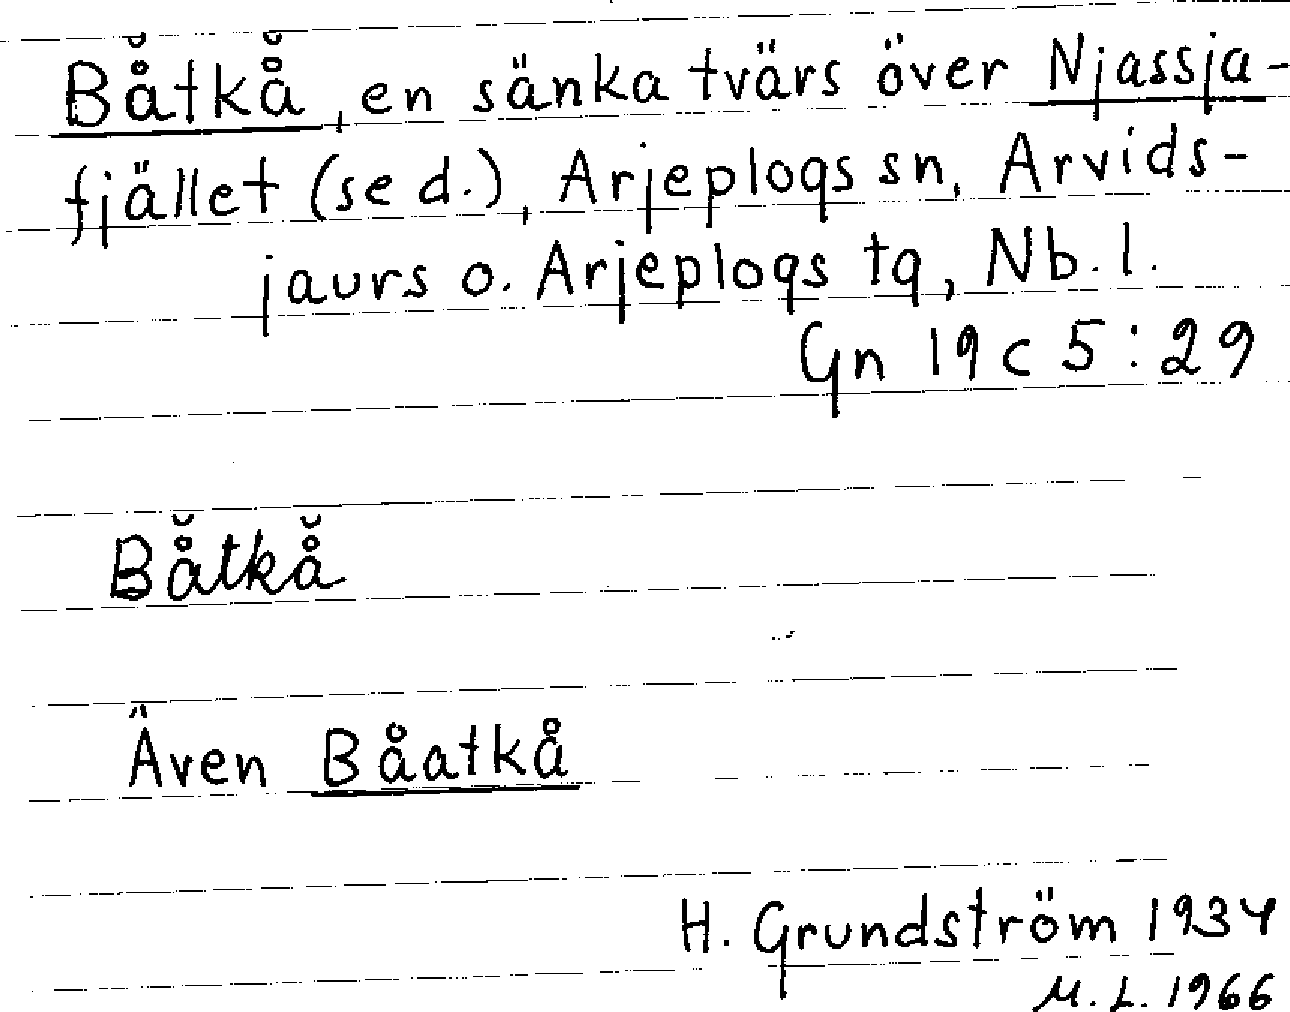 Bå̆tkå̆, en sänka tvärs över Njassja-
fjället (se d.), Arjeplogs sn, Arvids-
jaurs o. Arjeplogs tg, Nb. l.
Gn 19 c 5:29
Bå̆tkå̆
Även Båatkå
H. Grundström 1934
M. L. 1966